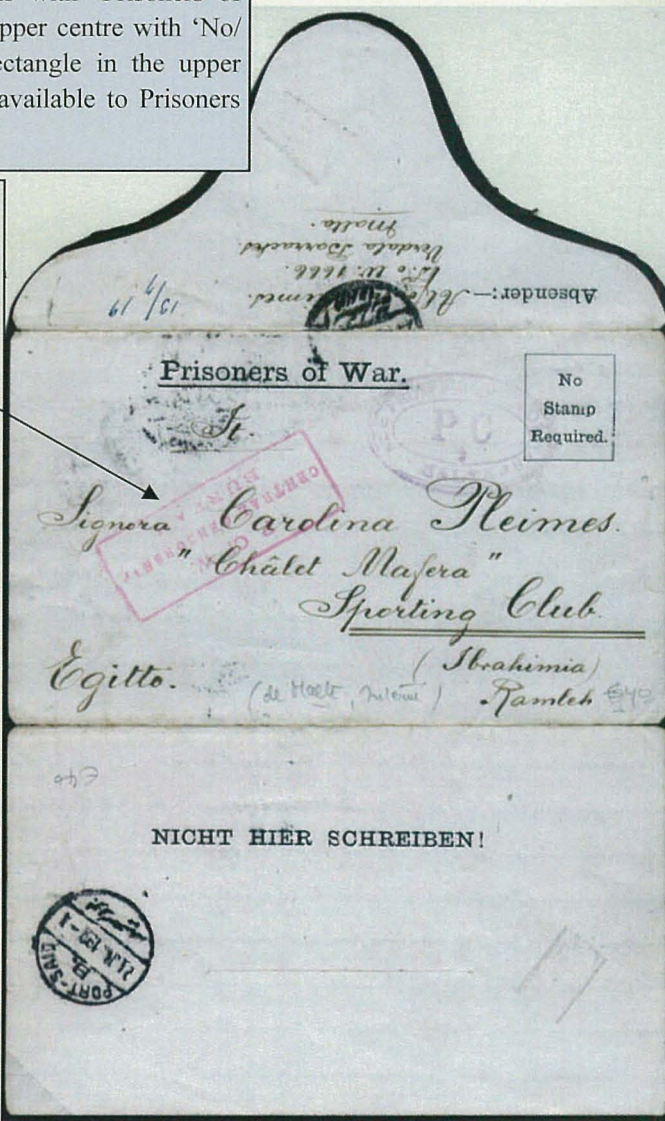 upper centre with 'No/
ectangle in the upper
available to Prisoners
Absender:—
No. 1666.
Verdala Barracks
Malta.
13/9 19
Prisoners of War.
No
Stamp
Required.
P.C
Signora Carolina Pleimes.
"Châlet Mafera"
Sporting Club.
(Ibrahimia)
Egitto.
Ramleh
CENTRAL CENSORSHIP
NICHT HIER SCHREIBEN!
PORT-SAID